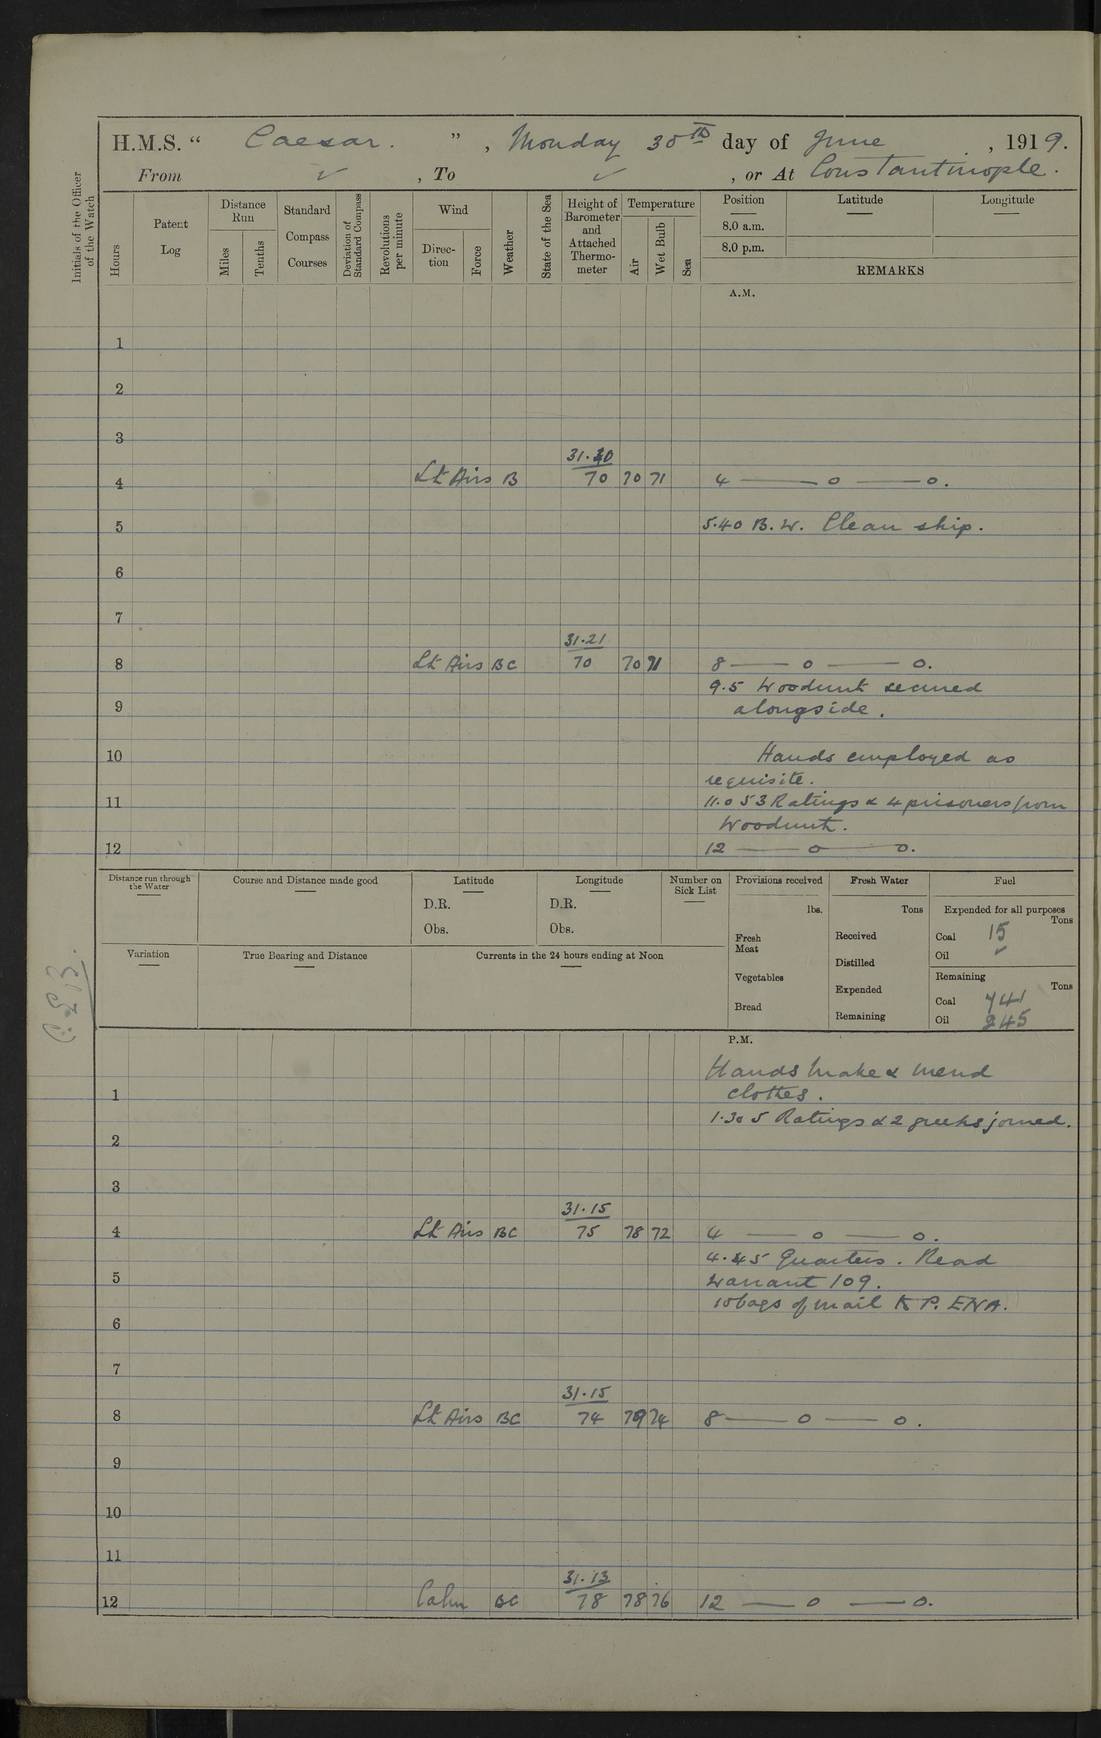 H.M.S. “ Caesar. ” , Monday 30th day of June , 1919.
From ✓ , To ✓ , or At Constantinople.
Initials of the Officer of the Watch
Hours
Patent Log
Distance Run
Miles
Tenths
Standard Compass Courses
Deviation of Standard Compass
Revolutions per minute
Wind
Direction
Force
Weather
State of the Sea
Height of Barometer and Attached Thermometer
Temperature
Air
Wet Bulb
Sea
Position
Latitude
Longitude
8.0 a.m.
8.0 p.m.
REMARKS
A.M.
1
2
3
31.30
4 Lt Airs B 70 70 71 4 — 0 — 0.
5 5.40 B.W. Clean ship.
6
7
31.21
8 Lt Airs BC 70 70 71 8 — 0 — 0.
9.5 Woodnut secured
9 alongside.
10 Hands employed as
requisite.
11 11.0 53 Ratings & 4 prisoners from
Woodnut.
12 12 — 0 — 0.
Distance run through the Water
Course and Distance made good
Latitude
D.R.
Obs.
Longitude
D.R.
Obs.
Number on Sick List
Provisions received
lbs.
Fresh Meat
Vegetables
Bread
Fresh Water
Tons
Received
Distilled
Expended
Remaining
Fuel
Expended for all purposes
Tons
Coal 15
Oil ✓
Remaining
Tons
Coal 741
Oil 245
Variation
True Bearing and Distance
Currents in the 24 hours ending at Noon
P.M.
Hands make & mend
1 clothes.
1.30 5 Ratings & 2 greeks joined.
2
3
31.15
4 Lt Airs BC 75 78 72 4 — 0 — 0.
4.45 Quarters. Read
5 warrant 109.
10 bags of mail to P. ENA.
6
7
31.15
8 Lt Airs BC 74 79 74 8 — 0 — 0.
9
10
11
31.13
12 Calm BC 78 78 76 12 — 0 — 0.